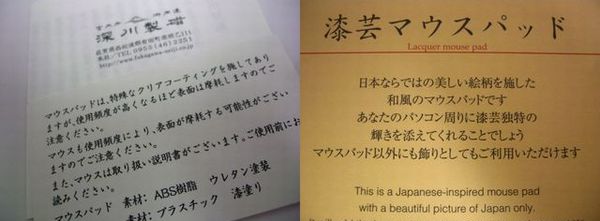 深川製磁
佐賀県西松浦郡有田町原明乙111
本社/TEL 0955(46)2251
マウスパッドは、特殊なクリアコーティングを施してあり
ますが、使用頻度が高くなるほど表面は摩耗しますのでご
注意ください。
マウスも使用頻度により、表面が摩耗する可能性がござい
ますのでご注意ください。
また、マウスは取り扱い説明書がございます。ご使用前にお
読みください。
マウスパッド 素材:ABS樹脂 ウレタン塗装
素材:プラスチック 漆塗り
漆芸マウスパッド
Lacquer mouse pad
日本ならではの美しい絵柄を施した
和風のマウスパッドです
あなたのパソコン周りに漆芸独特の
輝きを添えてくれることでしょう
マウスパッド以外にも飾りとしてもご利用いただけます
This is a Japanese-inspired mouse pad
with a beautiful picture of Japan only.